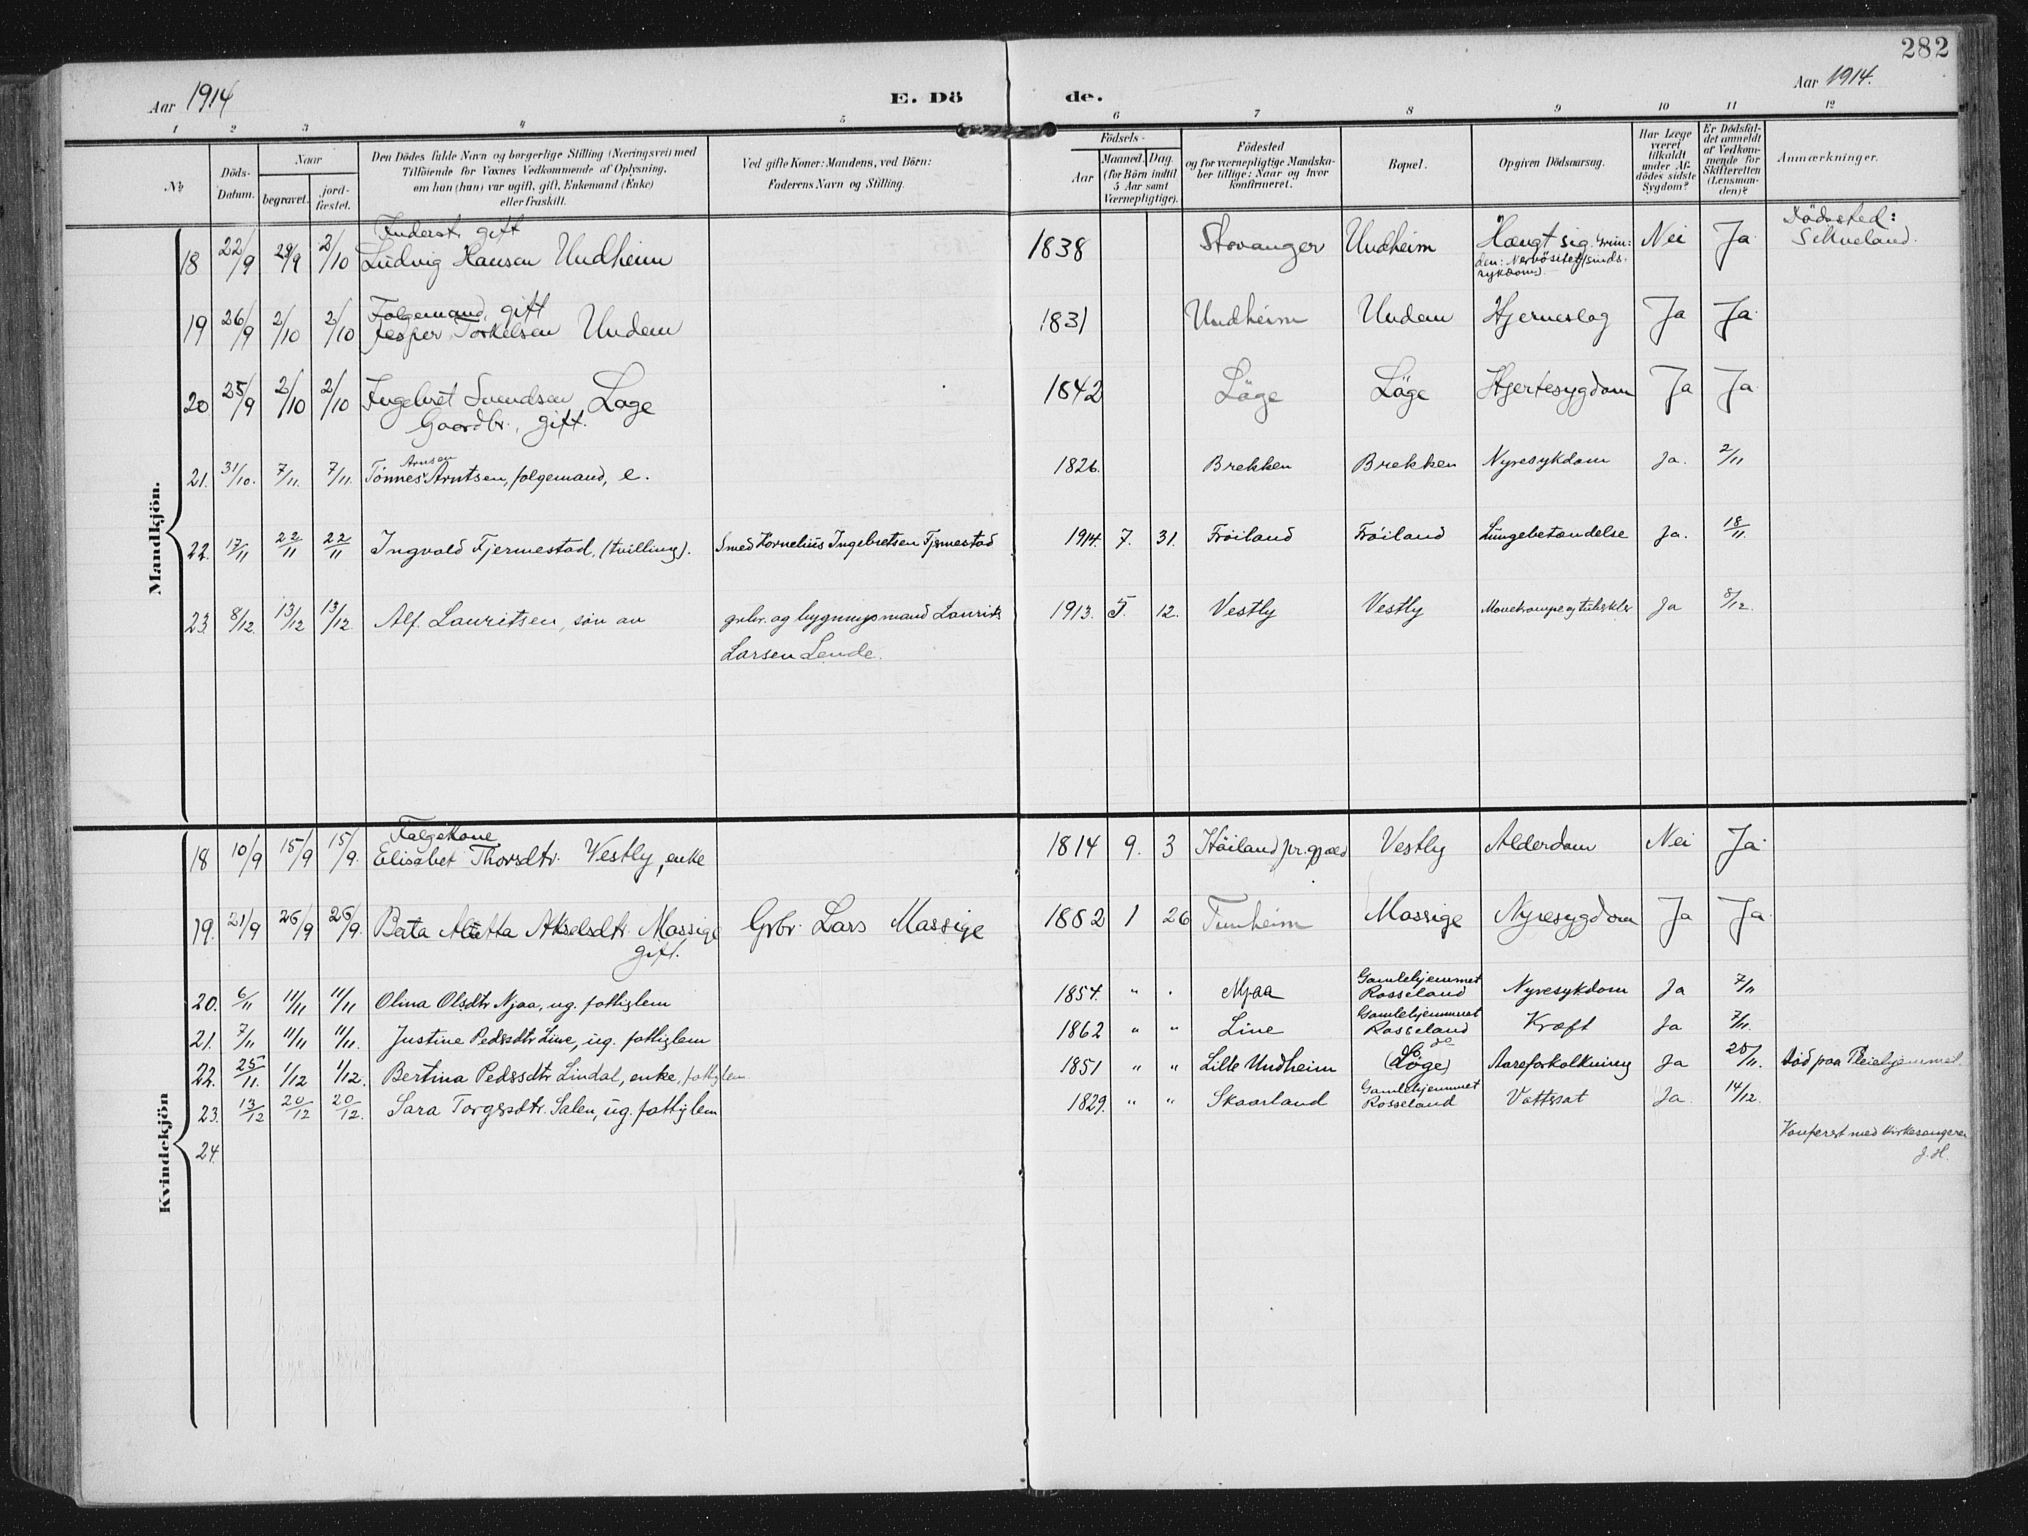 282
Aar 1914
E. Dö
de.
Aar 1914.
1 2 3 4 5 6 7 8 9 10 11 12
№
Döds-
Datum.
Naar
begravet.
jord-
fæstet.
Den Dödes fulde Navn og borgerlige Stilling (Næringsvei) med
Tilföiende for Voxnes Vedkommende af Oplysning,
om han (hun) var ugift, gift, Enkemand (Enke)
eller fraskilt.
Ved gifte Koner: Mandens, ved Börn:
Faderens Navn og Stilling.
Födsels-
Aar
Maaned. Dag.
(for Börn indtil
5 Aar samt
Værnepligtige).
Födested
og for værnepligtige Mandska-
ber tillige: Naar og hvor
konfirmeret.
Bopæl.
Opgiven Dödsaarsag.
Har Læge
været
tilkaldt
under Af-
dödes sidste
Sygdom?
Er Dödsfal-
det anmeldt
af Vedkom-
mende for
Skifteretten
(Lensman-
den)?
Anmærkninger.
Mandkjön.
Inderst, gift
18 22/9 29/9 2/10 Ludvig Hansen Undheim 1838 Stavanger Undheim Hængt sig. Grun-
den: Nervösitet (sinds-
sykdom) Nei Ja
Dödssted:
Sikveland.
Folgemand, gift
19 26/9 2/10 2/10 Jesper Torkelsen Undem 1831 Undheim Undem Hjerneslag Ja Ja
20 25/9 2/10 2/10 Ingebret Svendsen Lage 1842 Läge Läge Hjertesygdom Ja Ja
Gaardbr., gift.
Arnsen
21. 31/10. 7/11. 7/11. Tönnes Arntsen, folgemand, e. 1826. Brekken Brekken Nyresykdom Ja. 2/11
22. 17/11 22/11 22/11 Ingvald Fjermestad, (tvilling). Smed Kornelius Ingebretsen Fjermestad 1914. 7. 31. Fröiland Fröiland Lungebetændelse Ja. 18/11.
23. 8/12. 13/12 13/12. Alf Lauritsen, sön av grbr. og bygningsmand Laurits 1913. 5. 12. Vestly Vestly Ja 8/12.
Larsen Lende.
Kvindekjön
Folgekone
18 10/9 15/9 15/9. Elisabet Thorsdtr. Westly, enke 1814 9. 3 Höiland pr.gjæld Vestly Alderdom Nei Ja
19. 21/9 26/9 26/9. Berta Aletta Akselsdtr. Massige Grbr. Lars Massige 1882 1 26 Tunheim Massige Nyresygdom Ja Ja
gift.
20. 6/11 11/11 11/11 Olina Olsdtr Njaa, ug. fattiglem 1854. " . Njaa Gamlehjemmet
Rosseland Nyresykdom Ja 7/11
21. 7/11 11/11 11/11. Justine Pedersdtr Line, ug. fattiglem 1862 " " Line Gamlehjemmet
Rosseland Kræft Ja 7/11.
22. 25/11. 1/12 1/12. Bertina Pedersdtr Lindal, enke, fattiglem 1851 " " Lille Undheim do do
(Löge) Aareforkalkning Ja 25/11. Död paa Pleiehjemmet.
23. 13/12 20/12 20/12. Sara Torgersdtr. Salen, ug. fattiglem 1829. " " Skaarland Gamlehjemmet
Rosseland Vattsot Ja. 14/12.
24.
Konferert med kirkesangeren
J. H.